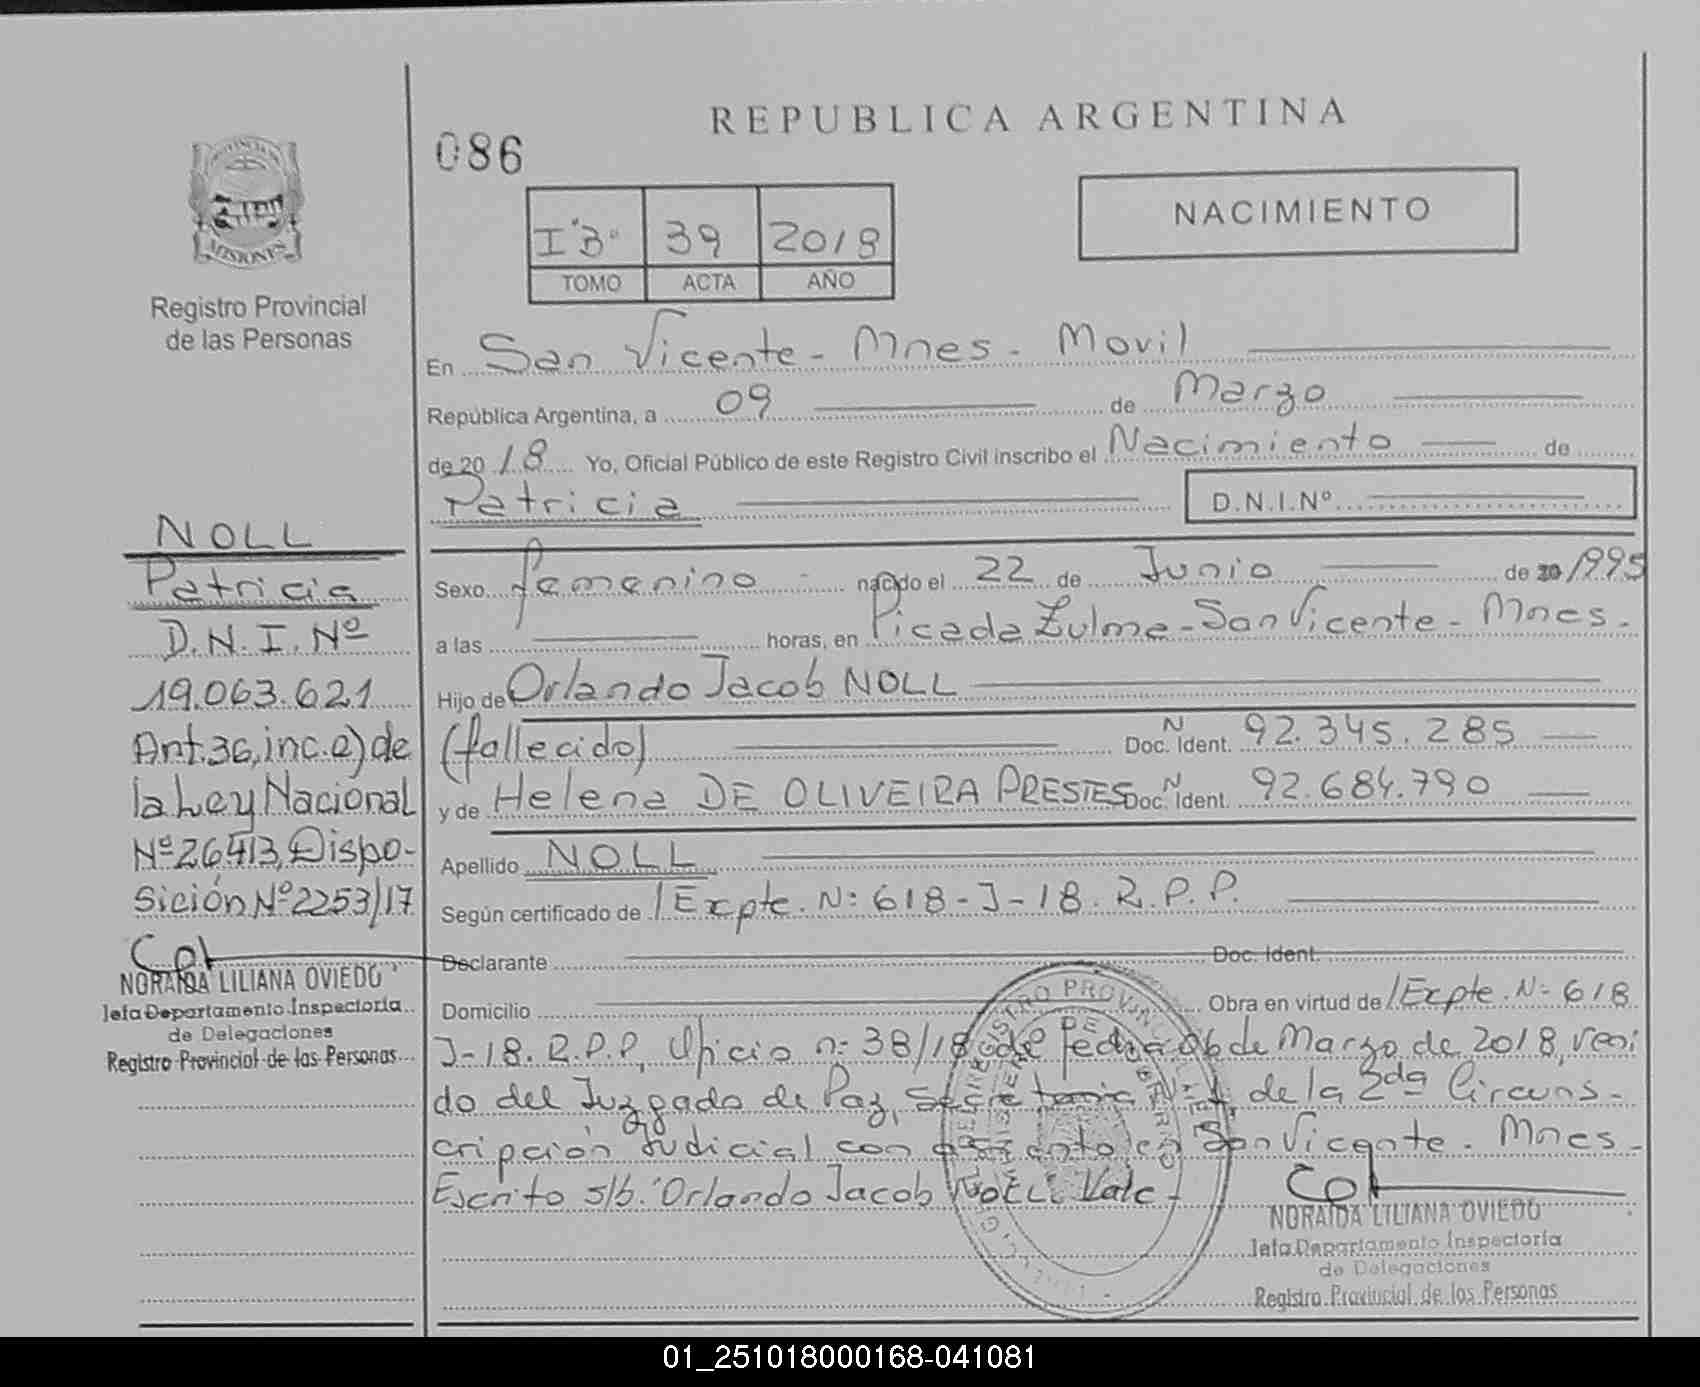 REPUBLICA ARGENTINA
086
NACIMIENTO
I "B" 39 2018
TOMO ACTA AÑO
MISIONES
Registro Provincial
de las Personas
En San Vicente - Mnes - Movil
República Argentina, a 09 de Marzo
de 2018 Yo, Oficial Público de este Registro Civil inscribo el Nacimiento de
Patricia D.N.I.Nº
Sexo femenino nacido el 22 de Junio de 20 1995
a las horas, en Picada Zulma - San Vicente - Mnes -
Hijo de Orlando Jacob NOLL
(fallecido) Doc. Ident. N 92.345.285
y de Helena DE OLIVEIRA PRESTES Doc. Ident. N 92.684.790
Apellido NOLL
Según certificado de /Expte. N: 618-J-18. R.P.P.
Declarante Doc. Ident.
Domicilio Obra en virtud de /Expte. N: 618
J-18. R.P.P, Oficio n: 38/18 de fecha 06 de Marzo de 2018, veni
do del Juzgado de Paz, Secretaria Nº 1 de la 2da Circuns-
cripción Judicial con asiento en San Vicente - Mnes -
Escrito s/b. "Orlando Jacob NOLL" Vale -
NORAIDA LILIANA OVIEDO
Jefa Departamento Inspectoría
de Delegaciones
Registro Provincial de las Personas
NOLL
Patricia
D.N.I. Nº
19.063.621
Art.36, inc.e) de
la Ley Nacional
Nº 26413, Dispo-
sición Nº 2253/17
NORAIDA LILIANA OVIEDO
Jefa Departamento Inspectoría
de Delegaciones
Registro Provincial de las Personas
01_251018000168-041081